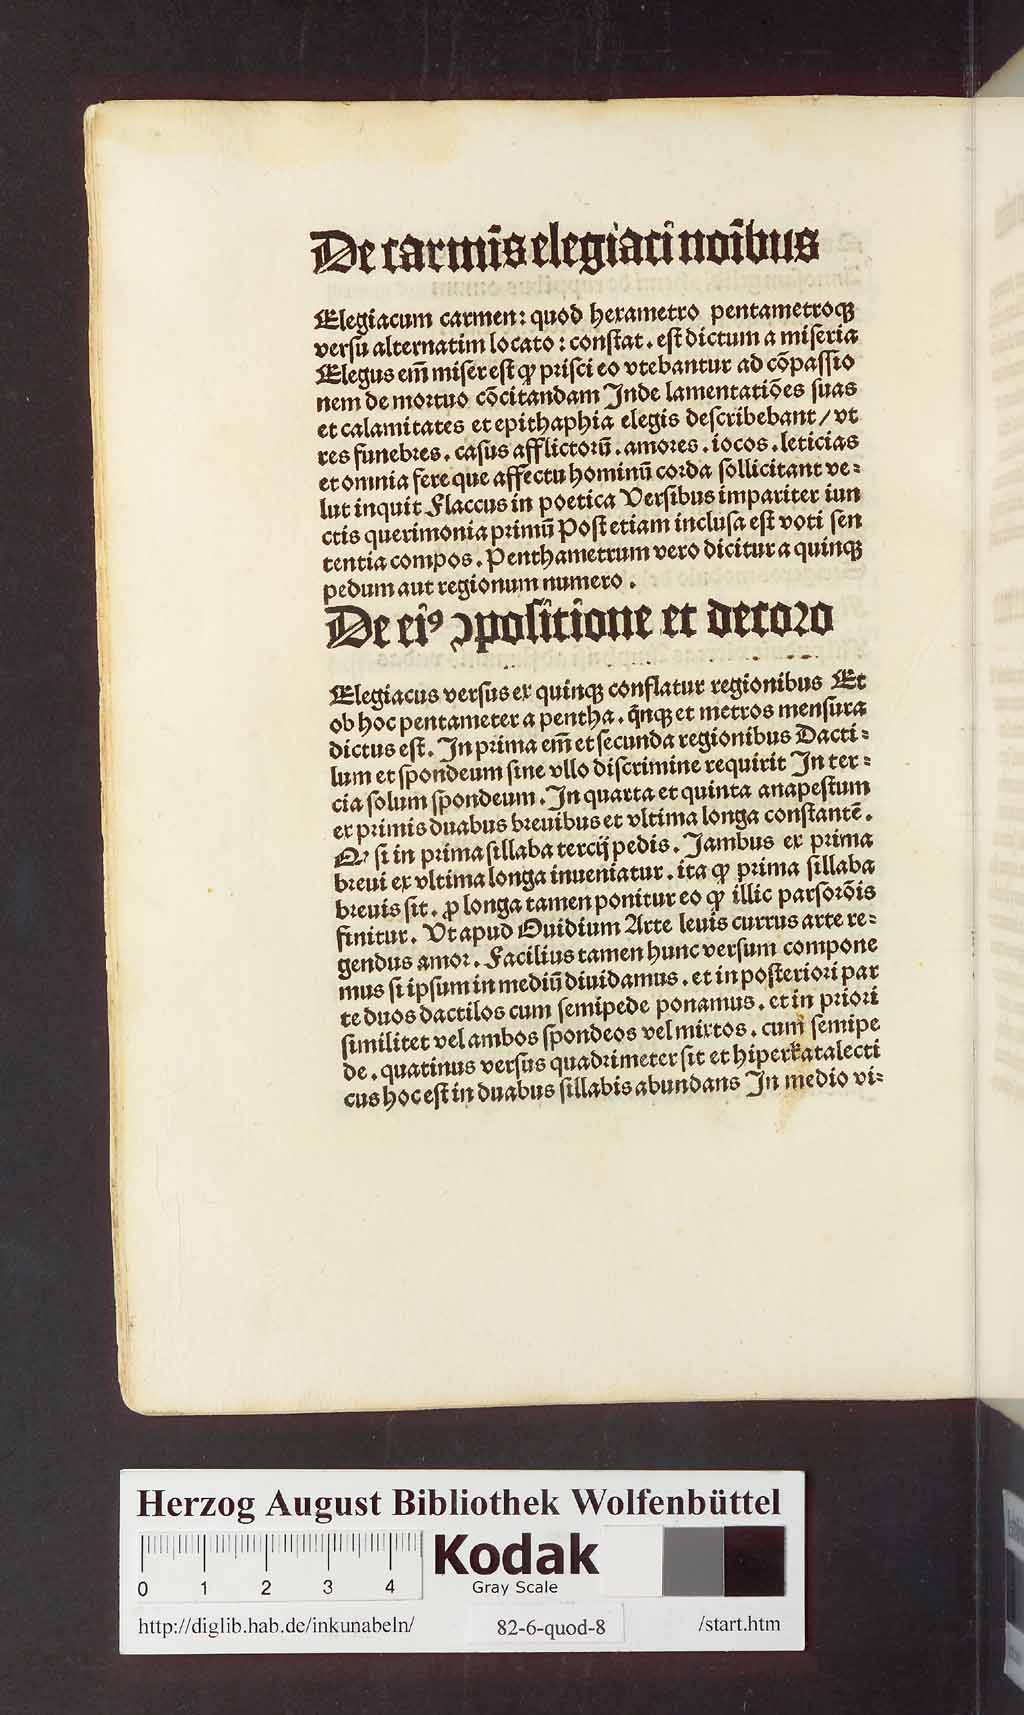 De carmīs elegiaci noībus
Elegiacum carmen: quod hexametro pentametroqꝫ
versu alternatim locato: constat. est dictum a miseria
Elegus em̄ miser est ꝙ prisci eo vtebantur ad cōpassio
nem de mortuo cōcitandam Inde lamentatiōes suas
et calamitates et epithaphia elegis describebant/ vt
res funebres. casus afflictorū. amores. iocos. leticias
et omnia fere que affectu hominū corda sollicitant ve⸗
lut inquit Flaccus in poetica Versibus impariter iun
ctis querimonia primū Post etiam inclusa est voti sen
tentia compos. Penthametrum vero dicitur a quinqꝫ
pedum aut regionum numero.
De eiꝰ ꝯpositione et decoro
Elegiacus versus ex quinqꝫ conflatur regionibus Et
ob hoc pentameter a pentha. q̄nqꝫ et metros mensura
dictus est. In prima em̄ et secunda regionibus Dacti⸗
lum et spondeum sine vllo discrimine requirit In ter⸗
cia solum spondeum. In quarta et quinta anapestum
ex primis duabus breuibus et vltima longa constantē.
Ꝙ si in prima sillaba tercij pedis. Jambus ex prima
breui ex vltima longa inueniatur. ita ꝙ prima sillaba
breuis sit. ꝓ longa tamen ponitur eo ꝙ illic pars orōis
finitur. Vt apud Ouidium Arte leuis currus arte re⸗
gendus amor. Facilius tamen hunc versum compone
mus si ipsum in mediū diuidamus. et in posteriori par
te duos dactilos cum semipede ponamus. et in priori
similitet vel ambos spondeos vel mixtos. cum semipe
de. quatinus versus quadrimeter sit et hiperkatalecti
cus hoc est in duabus sillabis abundans In medio vi⸗
Herzog August Bibliothek Wolfenbüttel
0 1 2 3 4
Kodak
Gray Scale
http://diglib.hab.de/inkunabeln/ 82-6-quod-8 /start.htm